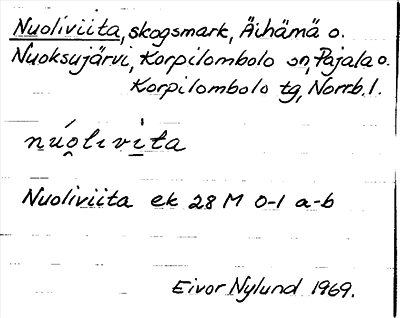 Nuoliviita, skogsmark, Äihämä o.
Nuoksujärvi, Korpilombolo sn, Pajala o.
Korpilombolo tg, Norrb. l.
núo̯livi̲ta
Nuoliviita ek 28 M 0-1 a-b
Eivor Nylund 1969.